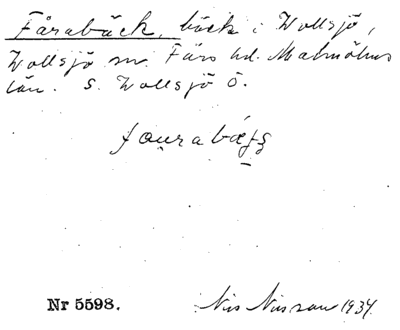 Fårabäck, bäck i Vollsjö,
Vollsjö sn. Färs hd. Malmöhus
län. S. Vollsjö ö.
Nr 5598. Nis Nisson 1934.